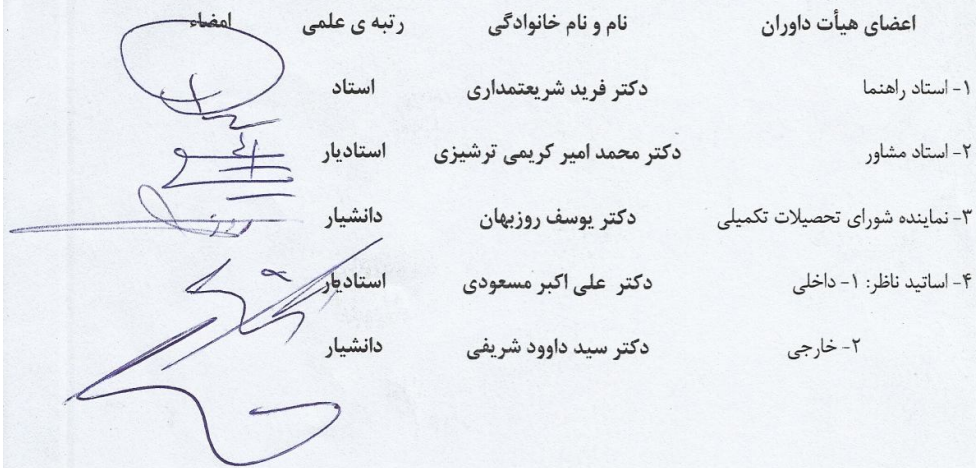 اعضای هیأت داوران نام و نام خانوادگی رتبه ی علمی امضاء
۱- استاد راهنما دکتر فرید شریعتمداری استاد
۲- استاد مشاور دکتر محمد امیر کریمی ترشیزی استادیار
۳- نماینده شورای تحصیلات تکمیلی دکتر یوسف روزبهان دانشیار
۴- اساتید ناظر: ۱- داخلی دکتر علی اکبر مسعودی استادیار
۲- خارجی دکتر سید داوود شریفی دانشیار